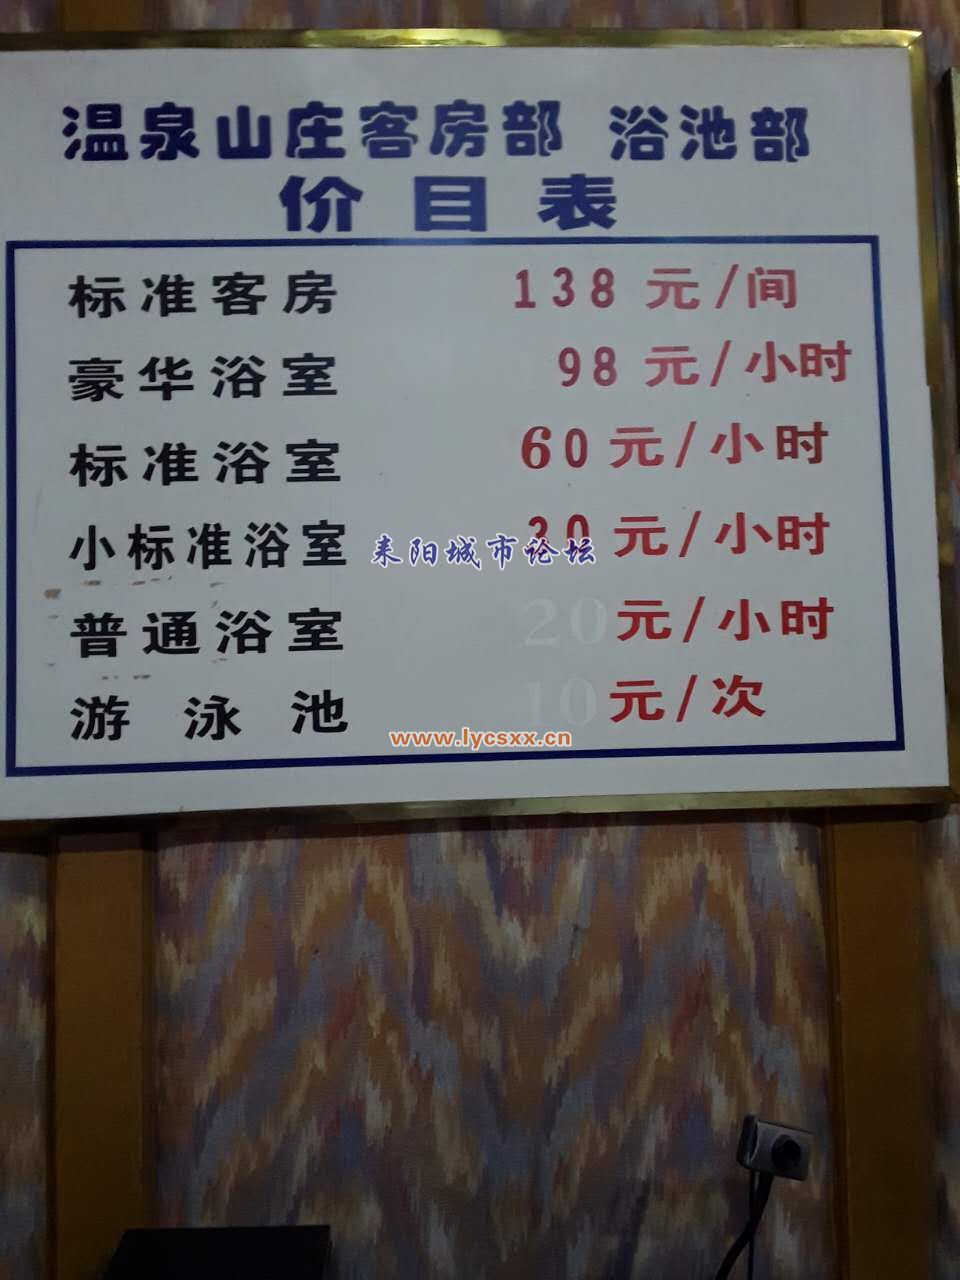 温泉山庄客房部 浴池部
价目表
标准客房 138元/间
豪华浴室 98元/小时
标准浴室 60元/小时
小标准浴室 元/小时
耒阳城市论坛
普通浴室 20元/小时
游泳池 10元/次
www.lycsxx.cn